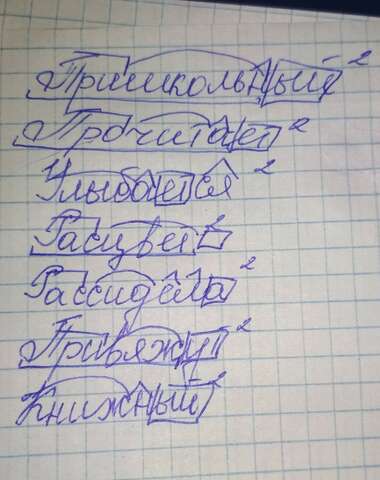 Пришкольный 2
Прочитает 2
Улыбается 2
Расцвет 2
Рассидела 2
Привяжу 2
Книжный 2